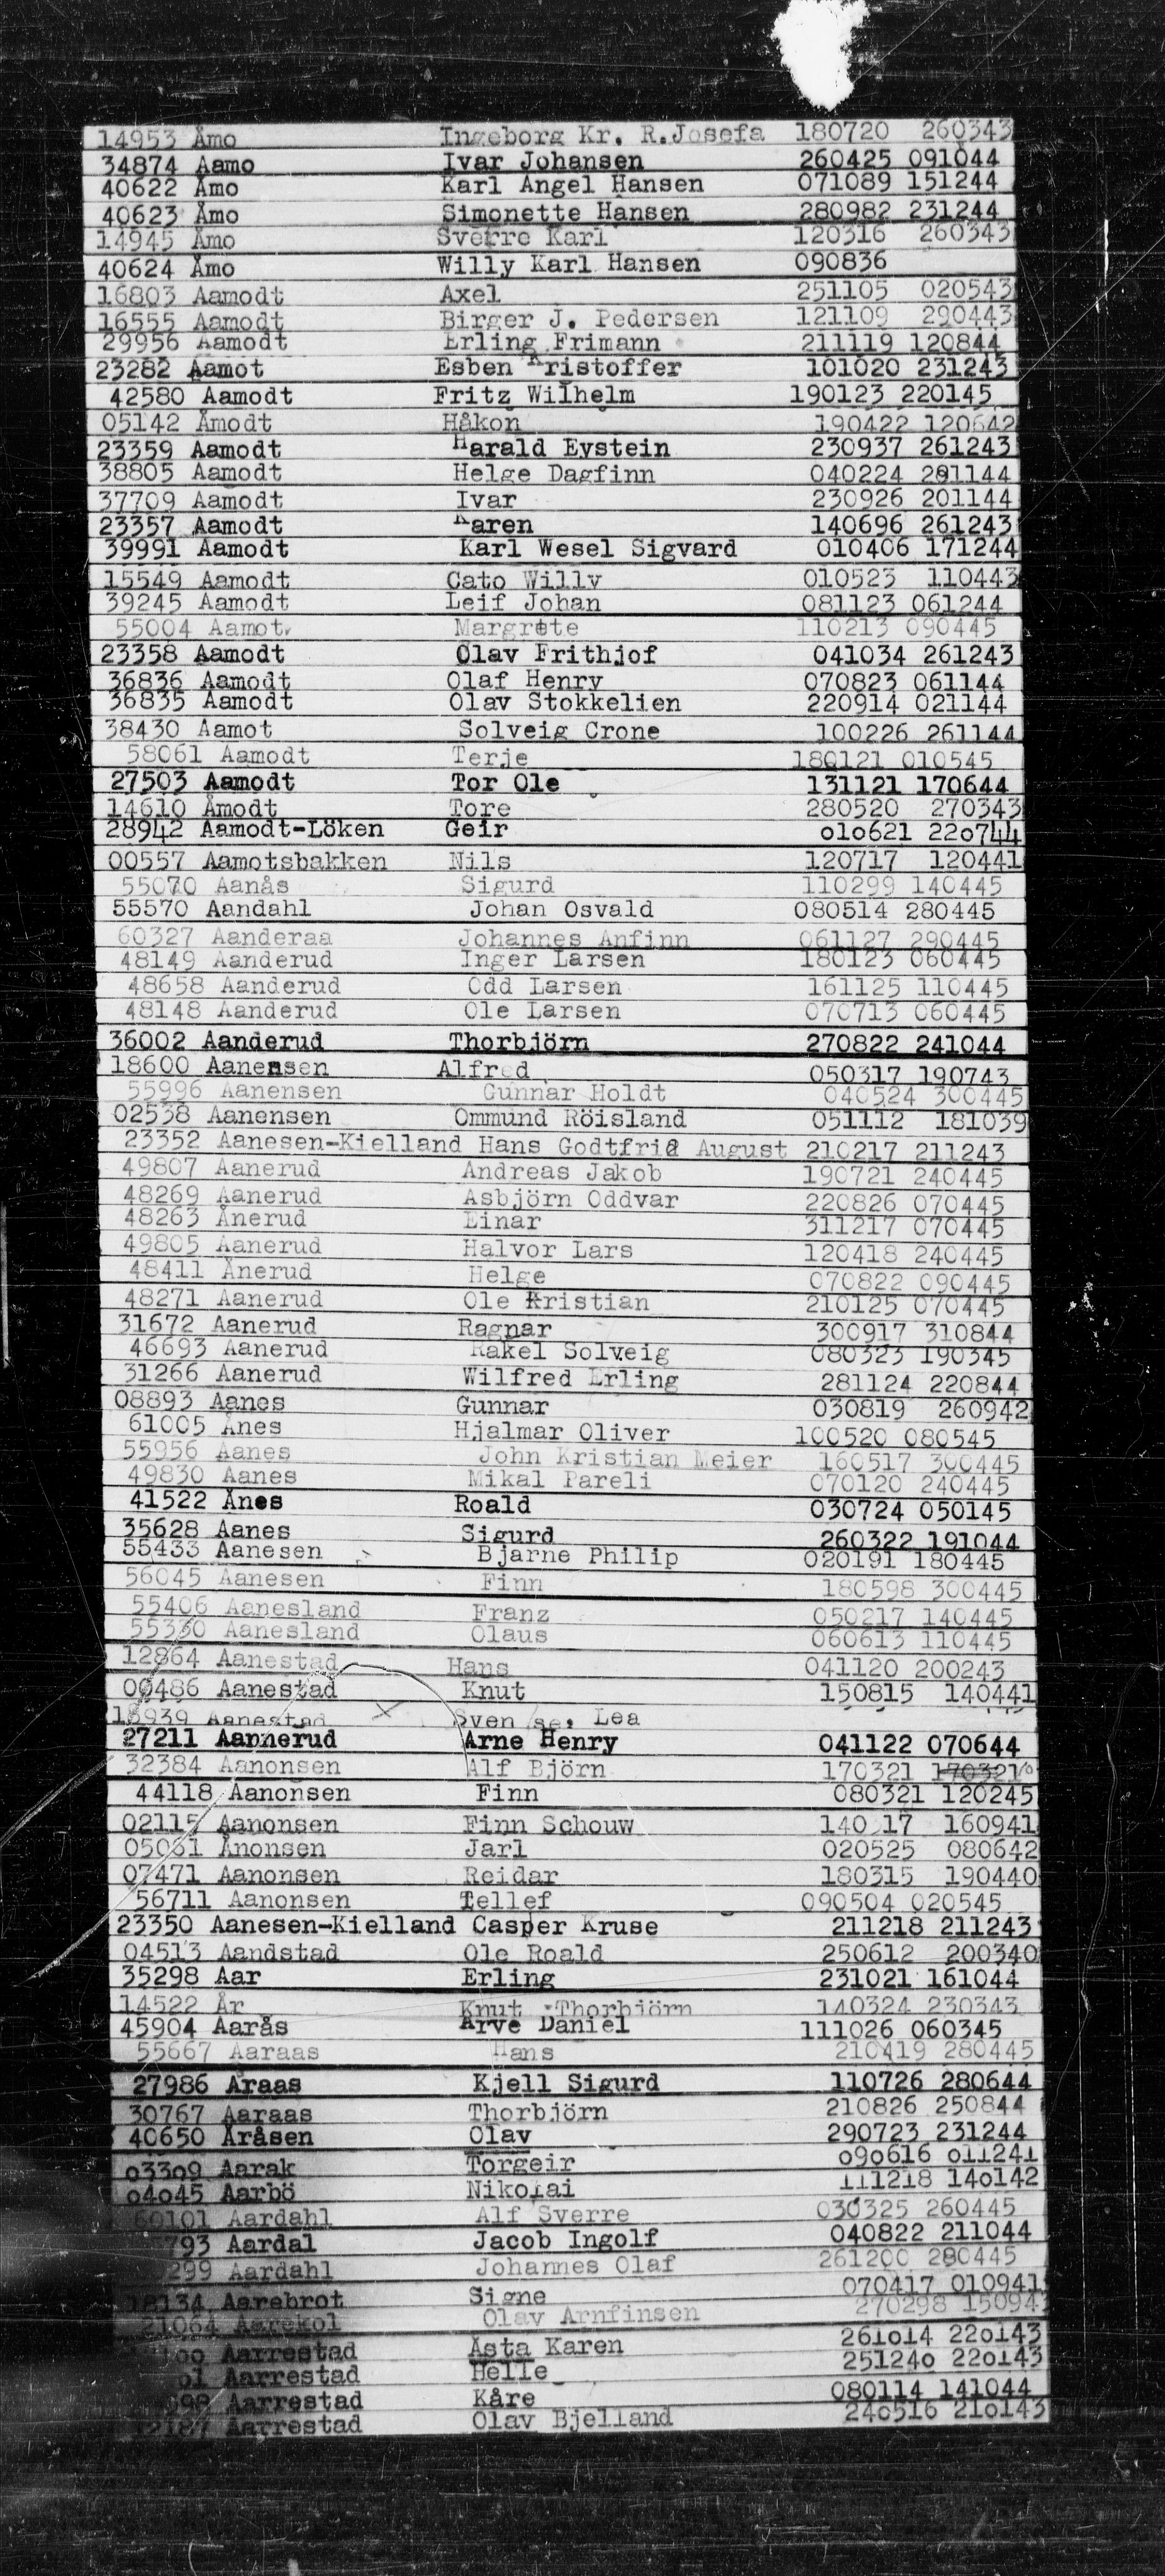 14953 Åmo Ingeborg Kr. R.Josefa 180720 260343
34874 Aamo Ivar Johansen 260425 091044
40622 Åmo Karl Angel Hansen 071089 151244
40623 Åmo Simonette Hansen 280982 231244
14945 Åmo Sverre Karl 120316 260343
40624 Åmo Willy Karl Hansen 090836
16803 Aamodt Axel 251105 020543
16555 Aamodt Birger J. Pedersen 121109 290443
29956 Aamodt Erling Frimann 211119 120844
23282 Aamot Esben Kristoffer 101020 231243
42580 Aamodt Fritz Wilhelm 190123 220145
05142 Åmodt Håkon 190422 120642
23359 Aamodt Harald Eystein 230937 261243
38805 Aamodt Helge Dagfinn 040224 281144
37709 Aamodt Ivar 230926 201144
23357 Aamodt Karen 140696 261243
39991 Aamodt Karl Wesel Sigvard 010406 171244
15549 Aamodt Cato Willy 010523 110443
39245 Aamodt Leif Johan 081123 061244
55004 Aamot Margrete 110213 090445
23358 Aamodt Olav Frithjof 041034 261243
36836 Aamodt Olaf Henry 070823 061144
36835 Aamodt Olav Stokkelien 220914 021144
38430 Aamot Solveig Crone 100226 261144
58061 Aamodt Terje 180121 010545
27503 Aamodt Tor Ole 131121 170644
14610 Åmodt Tore 280520 270343
28942 Aamodt-Löken Geir 010621 220744
00557 Aamotsbakken Nils 120717 120441
55070 Aanås Sigurd 110299 140445
55570 Aandahl Johan Osvald 080514 280445
60327 Aanderaa Johannes Anfinn 061127 290445
48149 Aanderud Inger Larsen 180123 060445
48658 Aanderud Odd Larsen 161125 110445
48148 Aanderud Ole Larsen 070713 060445
36002 Aanderud Thorbjörn 270822 241044
18600 Aanensen Alfred 050317 190743
55996 Aanensen Gunnar Holdt 040524 300445
02538 Aanensen Ommund Röisland 051112 181039
23352 Aanesen-Kielland Hans Godtfrid August 210217 211243
49807 Aanerud Andreas Jakob 190721 240445
48269 Aanerud Asbjörn Oddvar 220826 070445
48263 Ånerud Einar 311217 070445
49805 Aanerud Halvor Lars 120418 240445
48411 Ånerud Helge 070822 090445
48271 Aanerud Ole Kristian 210125 070445
31672 Aanerud Ragnar 300917 310844
46693 Aanerud Rakel Solveig 080323 190345
31266 Aanerud Wilfred Erling 281124 220844
08893 Aanes Gunnar 030819 260942
61005 Ånes Hjalmar Oliver 100520 080545
55956 Aanes John Kristian Meier 160517 300445
49830 Aanes Mikal Pareli 070120 240445
41522 Ånes Roald 030724 050145
35628 Aanes Sigurd 260322 191044
55433 Aanesen Bjarne Philip 020191 180445
56045 Aanesen Finn 180598 300445
55406 Aanesland Franz 050217 140445
55350 Aanesland Olaus 060613 110445
12864 Aanestad Hans 041120 200243
00486 Aanestad Knut 150815 140441
Aanestad Sven Lea
27211 Aannerud Arne Henry 041122 070644
32384 Aanonsen Alf Björn 170321 170321
44118 Aanonsen Finn 080321 120245
02115 Aanonsen Finn Schouw 140 17 160941
05061 Ånonsen Jarl 020525 080642
07471 Aanonsen Reidar 180315 190440
56711 Aanonsen Tellef 090504 020545
23350 Aanesen-Kielland Casper Kruse 211218 211243
04513 Aandstad Ole Roald 250612 200340
35298 Aar Erling 231021 161044
14522 År Knut Thorbjörn 140324 230343
45904 Aarås Arve Daniel 111026 060345
55667 Aaraas Hans 210419 280445
27986 Åraas Kjell Sigurd 110726 280644
30767 Aaraas Thorbjörn 210826 250844
40650 Åråsen Olav 290723 231244
03309 Aarak Torgeir 090616 011241
04045 Aarbö Nikolai 111218 140142
60101 Aardahl Alf Sverre 030325 260445
793 Aardal Jacob Ingolf 040822 211044
299 Aardahl Johannes Olaf 261200 280445
Aarebrot Signe 070417 010941
21064 Olav Arnfinsen 270298 15094
Aarrestad Åsta Karen 261014 220143
01 Aarrestad Helle 251240 220143
98 Aarrestad Kåre 080114 141044
12187 Aarrestad Olav Bjelland 240516 210143